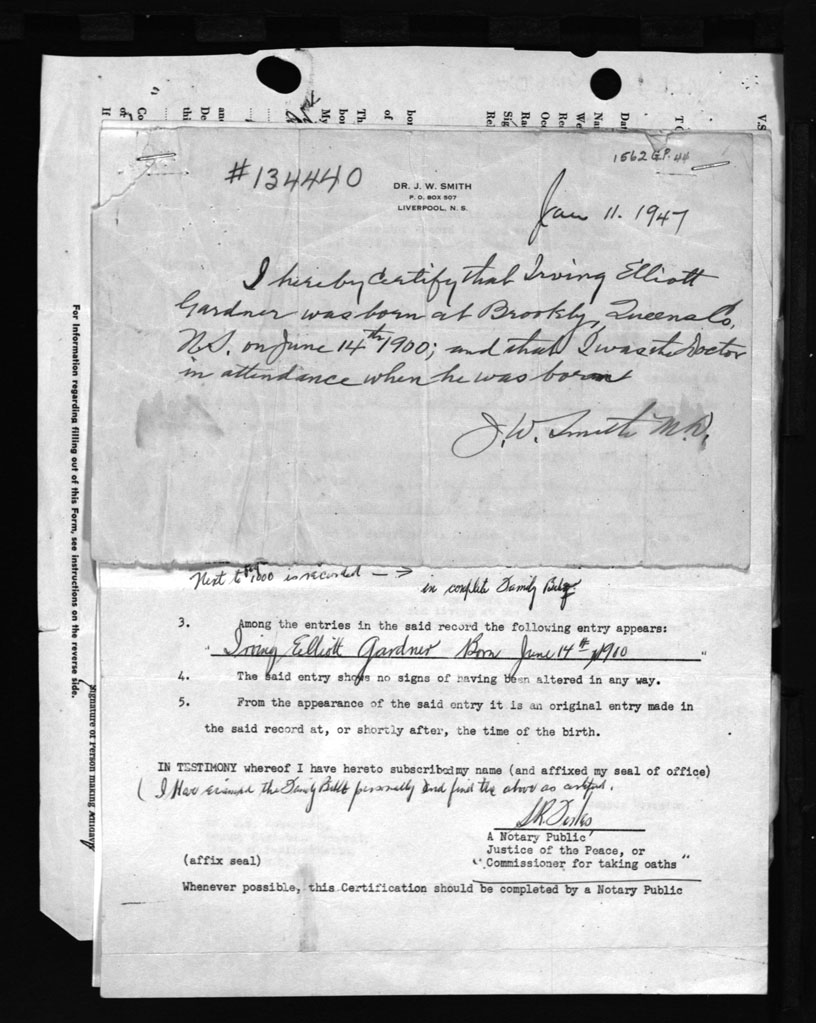 V.S
T
Dat
Na
We
Re
Occ
Rac
Sig
Rel
bor
of
Th
bor
My
and
De
thi
Co
of
If
1562 G.P. 44
#134440
DR. J. W. SMITH
P. O. BOX 507
LIVERPOOL, N. S.
Jan 11. 1947
I hereby certify that Irving Elliott
Gardner was born at Brookly, Queens Co,
N.S. on June 14th 1900; and that I was the Doctor
in attendance when he was born
J. W. Smith M.D.
For Information regarding filling out of this Form, see instructions on the reverse side.
Signature of Person making Affidavit
Next to 1900 is recorded — →
in complete Family Bible
3. Among the entries in the said record the following entry appears:
" Irving Elliott Gardner Born June 14th 1900 "
4. The said entry shows no signs of having been altered in any way.
5. From the appearance of the said entry it is an original entry made in
the said record at, or shortly after, the time of the birth.
IN TESTIMONY whereof I have hereto subscribed my name (and affixed my seal of office)
( I Have examined the Family Bible personally and find the above as certified.
A Notary Public
Justice of the Peace, or
(affix seal) "Commissioner for taking oaths"
Whenever possible, this Certification should be completed by a Notary Public